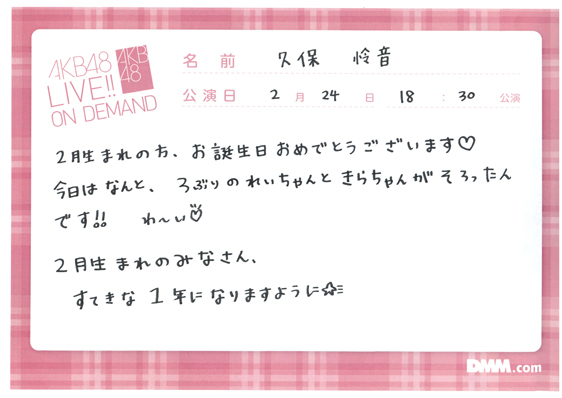 AKB48
LIVE!!
ON DEMAND
AKB
48
名前 久保 怜音
公演日 2月24日 18:30公演
2月生まれの方、お誕生日おめでとうございます♡
今日はなんと、3ぶりのれいちゃんときらちゃんがそろったん
です!! わ〜い♡
2月生まれのみなさん、
すてきな1年になりますように☆
DMM.com